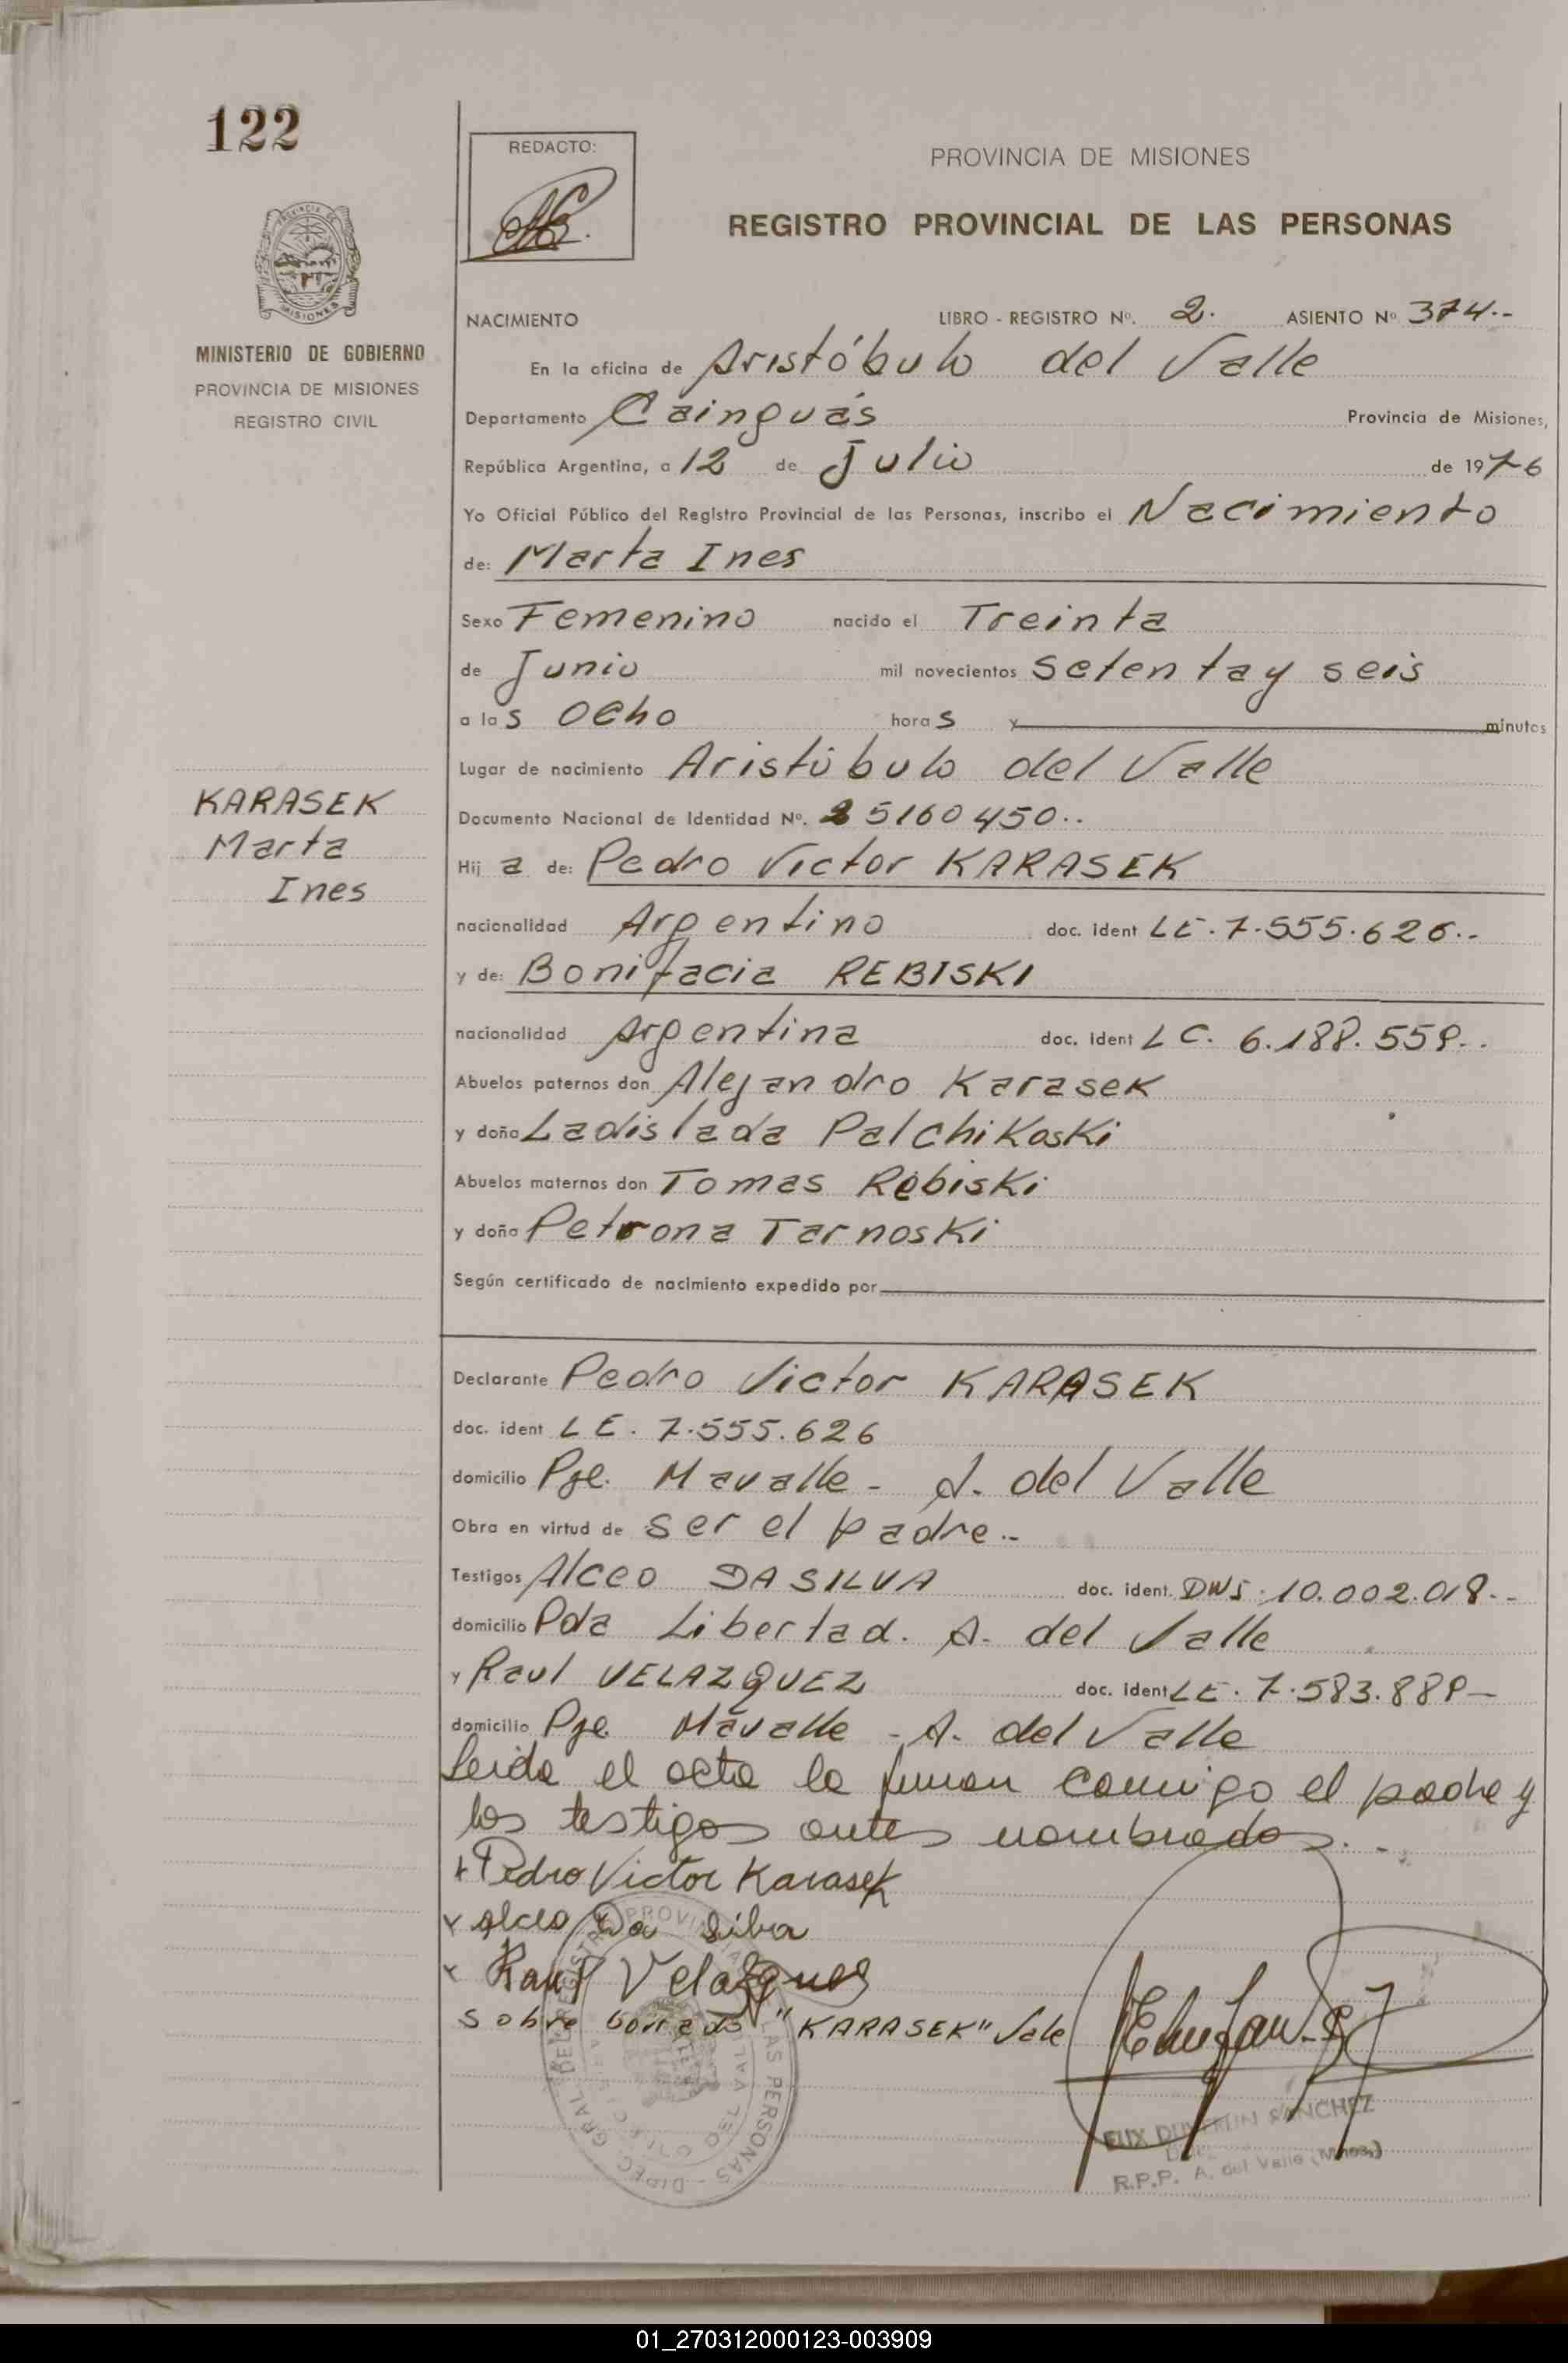 122
REDACTO:
PROVINCIA DE MISIONES
REGISTRO PROVINCIAL DE LAS PERSONAS
MISIONES
MINISTERIO DE GOBIERNO
PROVINCIA DE MISIONES
REGISTRO CIVIL
NACIMIENTO LIBRO - REGISTRO Nº. 2. ASIENTO Nº 374.-
En la oficina de Aristóbulo del Valle
Departamento Cainguás Provincia de Misiones,
República Argentina, a 12 de Julio de 1976
Yo Oficial Público del Registro Provincial de las Personas, inscribo el Nacimiento
de: Marta Ines
Sexo Femenino nacido el Treinta
de Junio mil novecientos setenta y seis
a las ocho horas y minutos
Lugar de nacimiento Aristóbulo del Valle
KARASEK
Marta
Ines
Documento Nacional de Identidad Nº. 25160450..
Hija de: Pedro Victor KARASEK
nacionalidad Argentino doc. ident LE. 7.555.626.-
y de: Bonifacia REBISKI
nacionalidad Argentina doc. ident LC. 6.188.559..
Abuelos paternos don Alejandro Karasek
y doña Ladislada Palchikoski
Abuelos maternos don Tomas Rebiski
y doña Petrona Tarnoski
Según certificado de nacimiento expedido por
Declarante Pedro Victor KARASEK
doc. ident LE. 7.555.626
domicilio Pje. Mavalle - A. del Valle
Obra en virtud de ser el padre.-
Testigos Alceo DA SILVA doc. ident. DNI. 10.002.018.-
domicilio Pda Libertad. A. del Valle
y Raul VELAZQUEZ doc. ident LE. 7.583.889-
domicilio Pje. Mavalle - A. del Valle
Leida el acta la firman conmigo el padre y
los testigos antes nombrados.-
Pedro Victor Karasek
Alceo Da Silva
Raul Velazquez
Sobre borrado "KARASEK" Vale
SANCHEZ
R.P.P. A. del Valle (Mnes.)
01_270312000123-003909